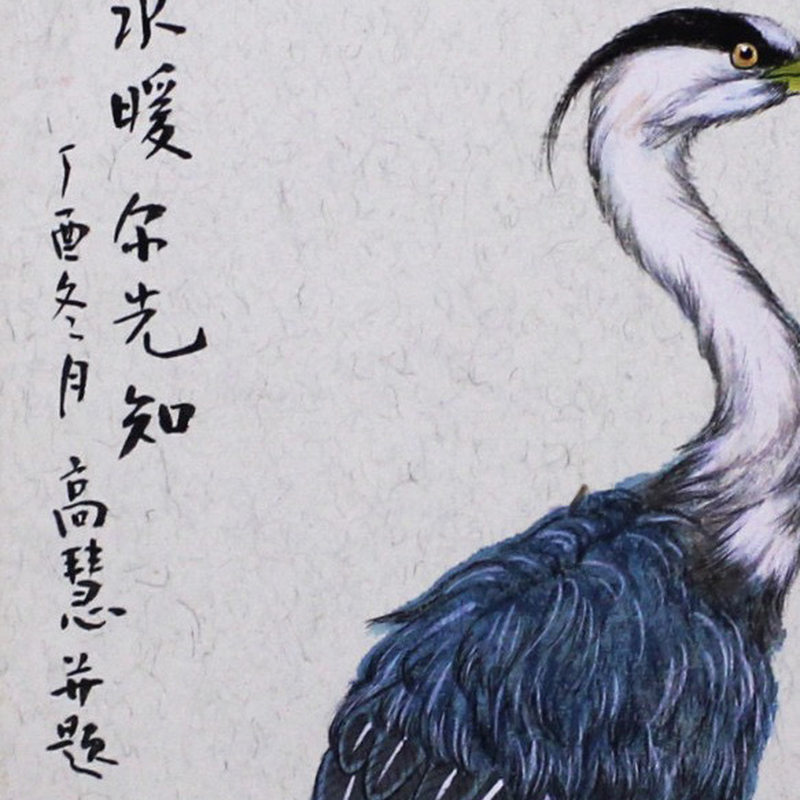 水暖尔先知
丁酉冬月高慧并题